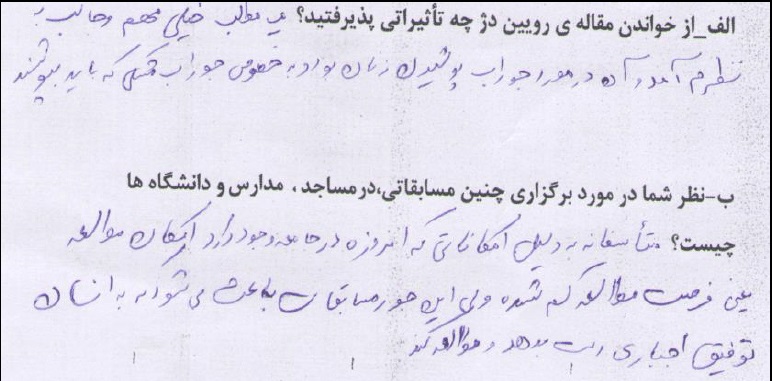 الف_از خواندن مقاله ی رویین دژ چه تأثیراتی پذیرفتید؟ یک مطلب خیلی مهم و جالب به
نظرم آمد و آن در مورد جوراب پوشیدن زنان بود به خصوص جوراب مشکی که باید بپوشند
ب-نظر شما در مورد برگزاری چنین مسابقاتی،درمساجد، مدارس و دانشگاه ها
چیست؟ متأسفانه به دلیل امکاناتی که امروزه در جامعه وجود دارد امکان مطالعه
یعنی فرصت مطالعه کم شده ولی این جور مسابقات باعث می شود که به انسان
توفیق اجباری دست بدهد و مطالعه کند